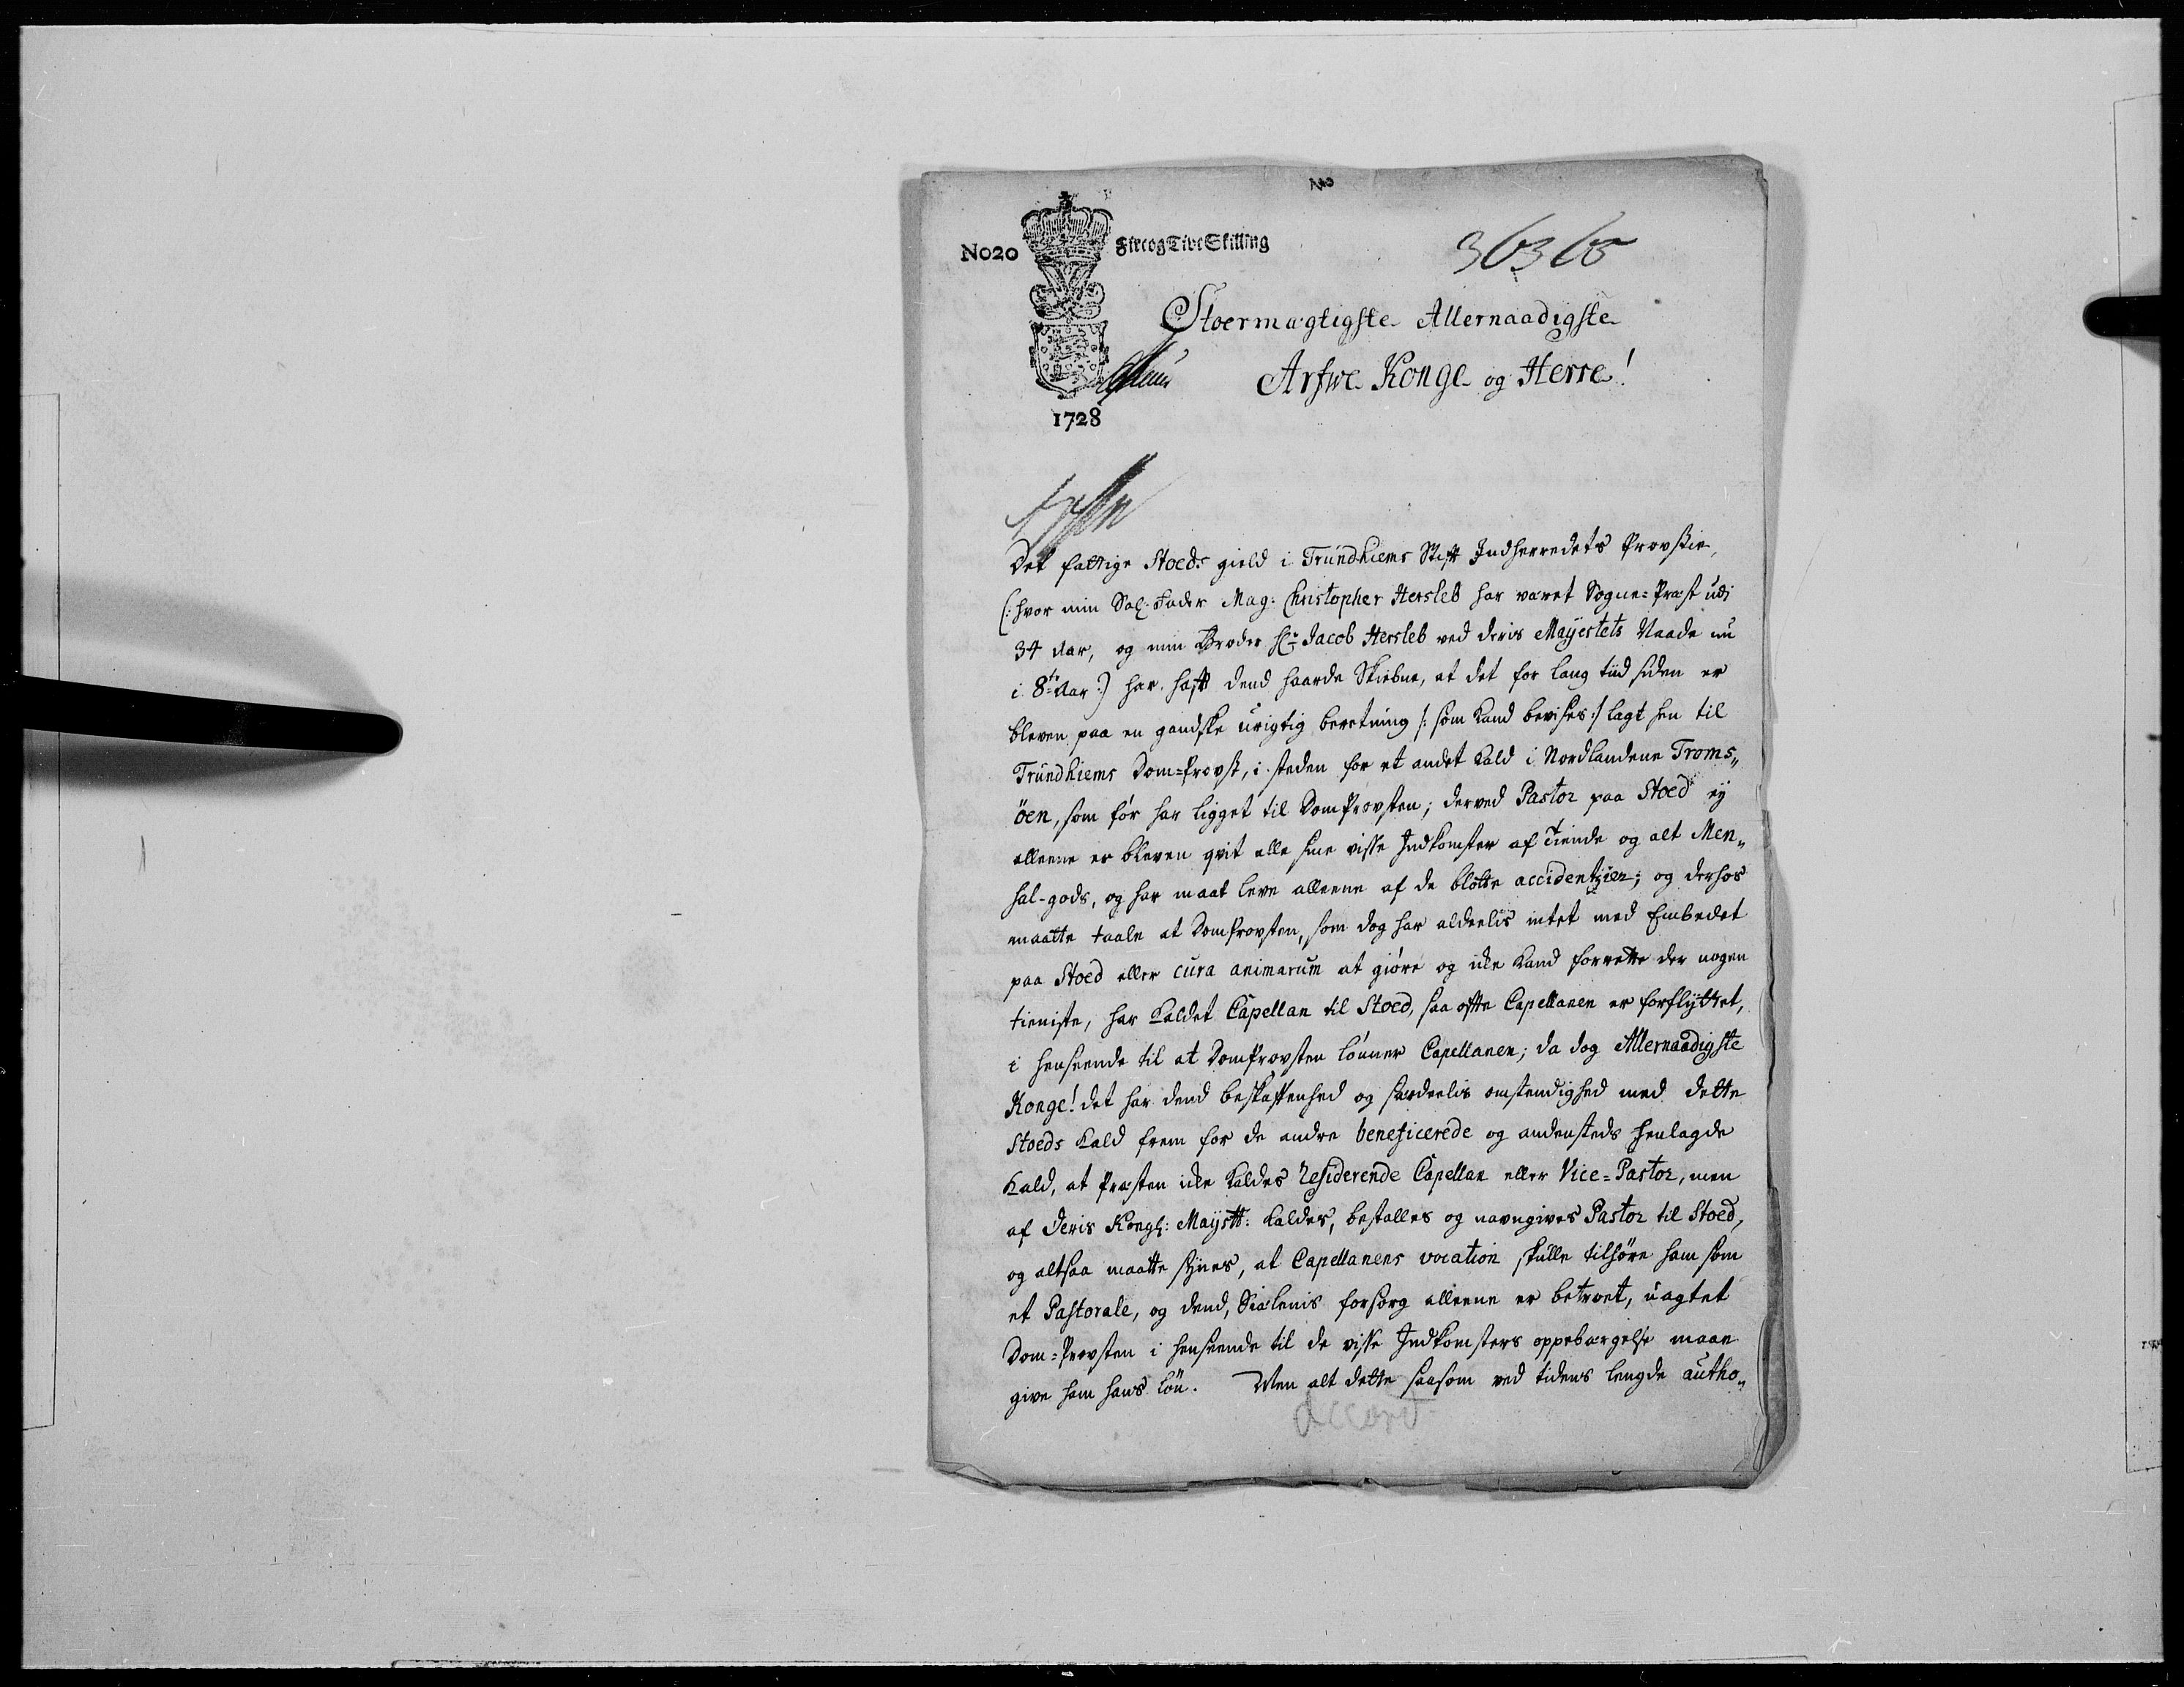 No20
Fire og Tive Skilling
Stoermægtigste Allernaadigste
Arfwe Konge og Herre!
1728
Det fattige Stoeds gield i Trúndhiems Stift Indherredets Provstie,
(: hvor min Sal: Fader Mag: Christopher Hersleb har været Sogne=Præst udi
34 Aar, og min Broder Hr: Jacob Hersleb ved Deris Mayestets Naade nu
i 8de Aar :) har haft dend haarde Skiebne, at det for lang tiid siden er
bleven paa en gandske urigtig beretning /: som kand bevises :/ lagt hen til
Trúndhiems Dom=Provst, i steden for et andet kald i Nordlandene Troms„
öen, som før har ligget til DomProvsten; derved Pastor paa Stoed ey
alleene er bleven qvit alle sine visse Indkomster af Tiende og alt Men„
sal-gods, og har maat leve alleene af de blotte accidentzier; og derhos
maatte taale at DomProvsten, som dog har aldeelis intet med Embedet
paa Stoed eller cura animarum at giöre og icke kand forrette der nogen
tieniste, har kaldet Capellan til Stoed, saa ofte Capellanen er forflyttet,
i henseende til at DomProvsten lönner Capellanen; da dog Allernaadigste
Konge! det har dend beskaffenhed og særdeelis omstendighed med dette
Stoeds kald frem for de andre beneficerede og andensteds henlagde
kald, at Præsten icke kaldes Residerende Capellan eller Vice=Pastor, men
af Deris Kongl: Mayst: kaldes, bestalles og navngives Pastor til Stoed,
og altsaa maatte synes, at Capellanens vocation skulle tilhøre ham som
et Pastorale, og dend, Siælenis forsorg alleene er betroet, uagtet
Dom=Provsten i henseende til de visse Indkomsters oppebærgelse maae
give ham hans lön. Men alt dette saasom ved tidens lengde autho„
accord